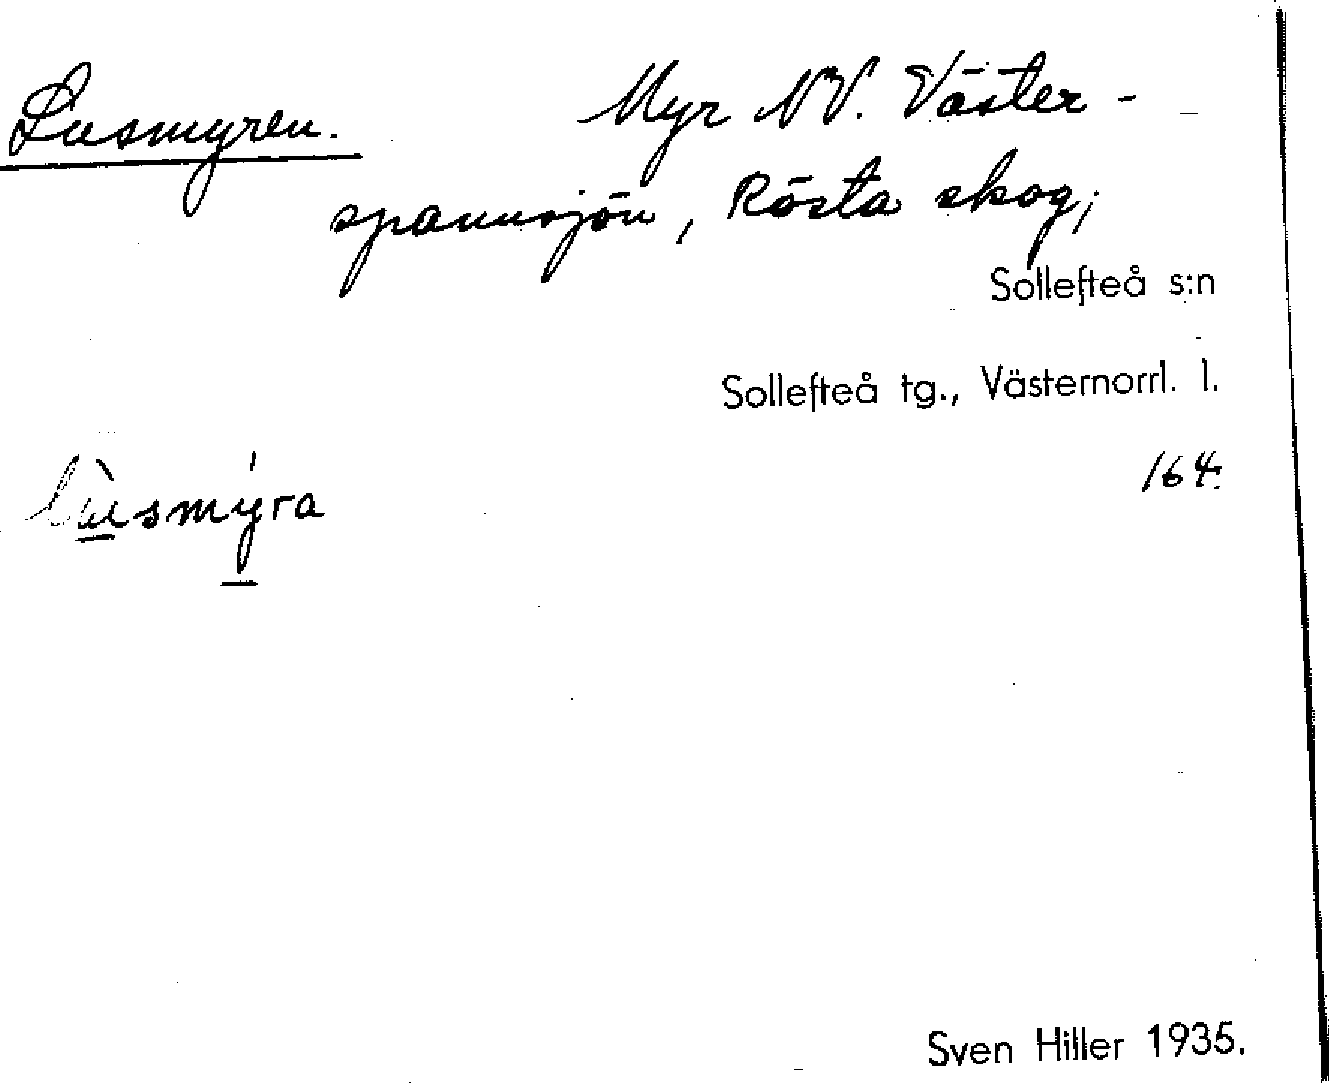 Lusmyren. Myr NV. Väster-
spannsjön, Rösta skog,
Sollefteå s:n
Sollefteå tg., Västernorrl. l.
164.
lù̱smý̱ra
Sven Hiller 1935.